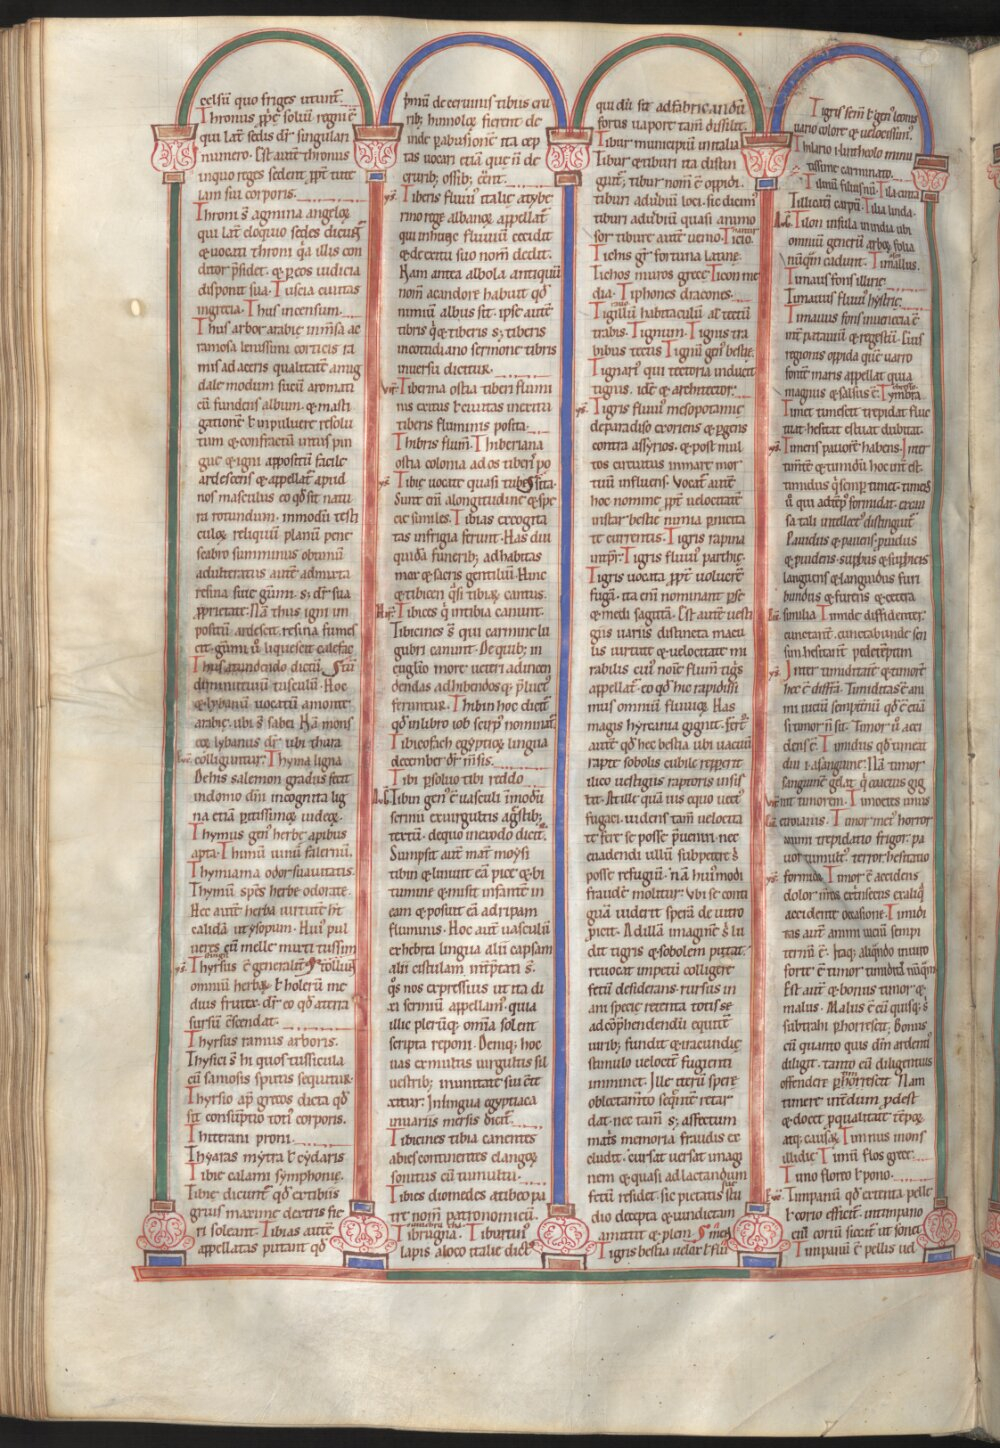 celsū quo friges utunt᷑.
Thronus ꝓpͤ soluū regni ē
qui latͤ sedis dr̄ singulari
numero. Est autē thronus
inquo reges sedent ꝓpͭ tute
lam sui corporis.
Throni s̄ agmina angeloꝝ
qui lat̄ eloquio sedes dicunt᷑
& uocati throni q̄a illis con
ditor p̄sidet. & ꝑ eos iudicia
disponit sua. Tuscia ciuitas
ingrecia. Thus incensum.
Thus arbor arabię inm̄sa ac
ramosa lenissimi corticis ra
mis ad aceris qualitatē amig
dale modum sucū aromati
cū fundens album. & masti
gationē ł inpuluerē resolu
tum & confractū intus pin
gue & igni appositū facile
ardescens & appellat᷑ apud
nos masculus eo qd̄ sit natu
ra rotundum. inmodū testi
culoꝝ reliquū planū pene
scabro summinus obtimū
adulteratur autē admixta
resina siue gūmi. s; dr̄ sua
ꝓprietate. Nā thus igni im
positū ardescit. resina fumes
cit. gūmi ū liquescit calefac
Thus atundendo dictū. Scū
diminitiuū tusculū. Hoc
& lybanū uocatū amonte
arabię. ubi s̄ sabei. Nā mons
eoꝝ lybanus dr̄ ubi thura
colliguntur. Thyina ligna
Dehis salemon gradus fecit
indomo dn̄i incognita lig
na etiā ꝑitissimoꝝ iudeoꝝ.
Thymus gen᷒ herbę apibus
apta. Thimū uinū falernū.
Thymiama odor suauitatis.
Thymū spēs herbe odorate.
Hec autē herba uirtutē hт̄
calidā ut ysopum. Hui᷒ pul
ueres cū melle mixti tussim
Thyrsus ē generalit᷑ tollunt
omniū herbaꝝ ł holerū me
dius frutex. dr̄ eo qd̄ aterra
sursū c̄scendat.
Thyrsus ramus arboris.
Thysici s̄ hi quos tussicula
cū saniosis sputis sequitur.
Thyrsio ap̄ grecos dicta qd̄
sit consūptio toti᷒ corporis.
Thiterani proni.
Thyaras mytra ł cydaris
Tibie calami symphonię.
Tibię dicunt᷑ qd̄ extibiis
gruis maxime dextris fie
ri soleant. Tibias autē
appellatas putant qd̄
p̄mū deceruinis tibiis cru
rib; hinnoloꝝ fierent de
inde ꝑ abusionē ita cep
tas uocari etiā que n̄ de
crurib; ossib; eēnt.
Tiberis fluui᷒ italię atybe
rino rege albanoꝝ appellat᷑
qui inhunc fluuiū cecidit
& decxitu suo nom̄ dedit.
Nam antea albola antiquū
nom̄ acandore habuit qd̄
nimiū albus sit. ipse autē
tibris q̄ & tiberis s; tiberis
incotidiano sermone tibris
inuersu dicitur.
Tiberina ostia tiberi flumi
nis exitus ł ciuitas inexitu
tiberis fluminis posita.
Thibris flum̄. Thiberiana
ostia colonia ad os tiberi᷒ po
Tibię uocate quasi tube sita
Sunt eni alongitudine & spe
cie similes. Tibias excogita
tas infrigia ferunt. Has diu
quidā funerib; adhibitas
mox & sacris gentiliū. Hinc
& tibicen q̄si tibiaꝝ cantus.
Tibices q̄ intibia canunt.
Tibicines s̄ qui carmine lu
gubri canunt. De quib; in
euglio more ueteri adincen
dendas adhibendosq; p̄luct᷒
feruntur. Thibin hoc dictū
qd̄ inlibro iob scirp᷒ nominat᷑
Tibicofach egyptioꝝ lingua
december dr̄ m̄sis.
Tibi ꝓsoluo tibi reddo
Tibin gen᷒ ē uasculi īmodū
scrinii exuirgultis agr̄stib;
textū. dequo inexodo dicit᷑.
Sumpsit autē mat᷑ moysi
tibin & liniuit eā pice & bi
tumine & misit infantē in
eam & posuit eā adripam
fluminis. Hoc autē uasculū
exhebrea lingua alii capsam
alii cistulam int̄ꝑtati s̄.
q̄s nos exꝑssius ut ita di
xi scriniū appellam᷒. quia
illic plerūq; om̄ia solent
scripta reponi. Deniq; hoc
uas ex multis uirgultis sil
uestrib; inunitate sui c̄tex
xitur. Inlingua egyptiaca
ianuariis mensis dicit᷑.
Tibicines tibia canentes
abiescontinentes clangoꝝ
sonitus cū tumultu.
Tibies diomedes atibeo pa
tre nom̄ patronomicū.
Tibrugna. Tiburtin᷒
lapis aloco italie dict᷒
qui dū sit adfabricandū
fortis uapore tam̄ dissilit.
Tibur municipiū initalia
Tibur & tiburi ita distin
guit᷑. tibur nom̄ ē oppidi.
tiburi aduꝟbiū loci. sic dicim᷒
tiburi aduꝟbiū quasi animo
for tibure autē ueno. Ticio.
Tichis gr̄ fortuna latine.
Tichos muros grece. Ticon me
dia. Tiphones dracones.
Tigillū habitaculū at tectū
trabis. Tignum. Tignis tra
bibus tectus. Tignū gen᷒ bestię.
Tignari᷒ qui tectoria inducit
tignis. idē & architector.
Tigris fluui᷒ mesopotamię
deparadiso exoriens & ꝑgens
contra assyrios. & post mul
tos circuitus inmare mor
tuū influens. Vocat᷑ autē
hoc nomine ꝓpt̄ uelocitatē
instar bestie nimia ꝑnicita
te currentis. Tigris rapina
intp̄r. Tigris fluui᷒ parthię.
Tigris uocata ꝓpt̄ uolucrē
fugā. ita eni nominant ꝑse
& medi sagittā. Est autē uesti
giis uariis distincta macu
lis uirtute & uelocitate mi
rabilis cui᷒ noīe flum̄ tigris
appellat᷑. eo qd̄ hic rapidissi
mus omniū fluuioꝝ. Has
magis hyrcania gignit. fert᷑
autē qd̄ hec bestia ubi uacuū
rapte sobolis cubile reppererit
ilico uestigiis raptoris insis
tit. At ille quā uis equo uect᷒
fugaci. uidens tam̄ uelocita
te fere se posse p̄ueniri. nec
euadendi ullū subpetere s̄
posse refugiū. nā hui᷒modi
fraudē molitur. Vbi se conti
guā uiderit sperā de uitro
ꝓicit. Ad illā imaginē s̄ lu
dit tigris & sobolem putat.
reuocat impetū colligere
fetū desiderans. rursus in
ani specie retenta totis se
adcōp̄hendendū equitē
uirib; fundit & iracundię
stimulo uelocit᷑ fugienti
imminet. Ille iterū spere
oblectam̄to seq̄ntē retar
dat. nec tam̄ s; affectum
mat̄s memoria fraudis ex
cludit. cursat uersat imagi
nem & quasi ad lactandum
fetū residet. sic pietatis stu
dio decepta & uindictam
amittit & plem.
Tigris bestia uelox ł flui᷒
Tigris fem̄. ł gen᷒ leonis
uario colore & uelocissimū.
tissime carminato.
Tilon insula inindia ubi
omniū generū arboꝝ folia
nūq̄m cadunt. Timallus.
Timaus fons illirię.
Timauus fluui᷒ hystrię.
Timauus fons inuenecia ē
int̄ patauiū & regestū. Eius
regionis oppida quē uarro
fontē maris appellat quia
magnus & salsus ē. Tymbra.
Timet timescit trepidat fluc
tuat. hesitat estuat dubitat.
Timens pauorē habens. Inter
timētē & timidū hoc int̄est.
timidus q̄ semꝑ timet. timens
ū qui adtēp᷒ formidat. exqui
sa tali intellect᷒ distinguit᷑
Pauidus & pauens. prudus
& pruidens. supbus & supbiens
languens & languidus. furi
bundus & furens & cetera
similia. Timide diffidenter.
cunctant᷑. cunctabunde sen
sim hesitant᷑. pedetemptim
Inter timiditatē & timorē
hec ē diffr̄a. Timiditas ē ani
mi uiciū sempitnū qd̄ ē etiā
si timor n̄ sit. Timor ū acci
dens ē. Timidus qd̄ timeat
diu ł asanguine. Nā timor
sanguinē gelat. q̄ coactus gig
nit timorem. Timoetes unus
exoriarius. Timor met᷒ horror
animi trepidatio frigor. pa
uor. tumult᷒. terror. hesitatio
formido. Timor ē accidens
dolor m̄tis extrinsecus exaliq̄
accidente occasione. Timidi
tas autē animi uiciū sempi
ternū ē. Itaq; aliqn̄do inuiro
forte ē timor. timiditas nūq̄m
Est autē & bonus timor &
malus. Malus ē cū quisq; s̄
subtrahi ꝑhorrescit. Bonus
cū quanto quis dn̄m ardenti᷒
diligit. tanto eū diligentius
offendere ꝑhorrescit. Nam
timere interdum ꝓdest
& docet ꝓ qualitate tēpoꝝ
atq; causaꝝ. Timnus mons
illidię. Timū flos grece.
Tino floreo ł pono.
Timpanū qd̄ extenta pelle
ł corio efficit᷑. intimpano
eni coriū siccat᷑ ut sonet
Timpanū ē pellis uel